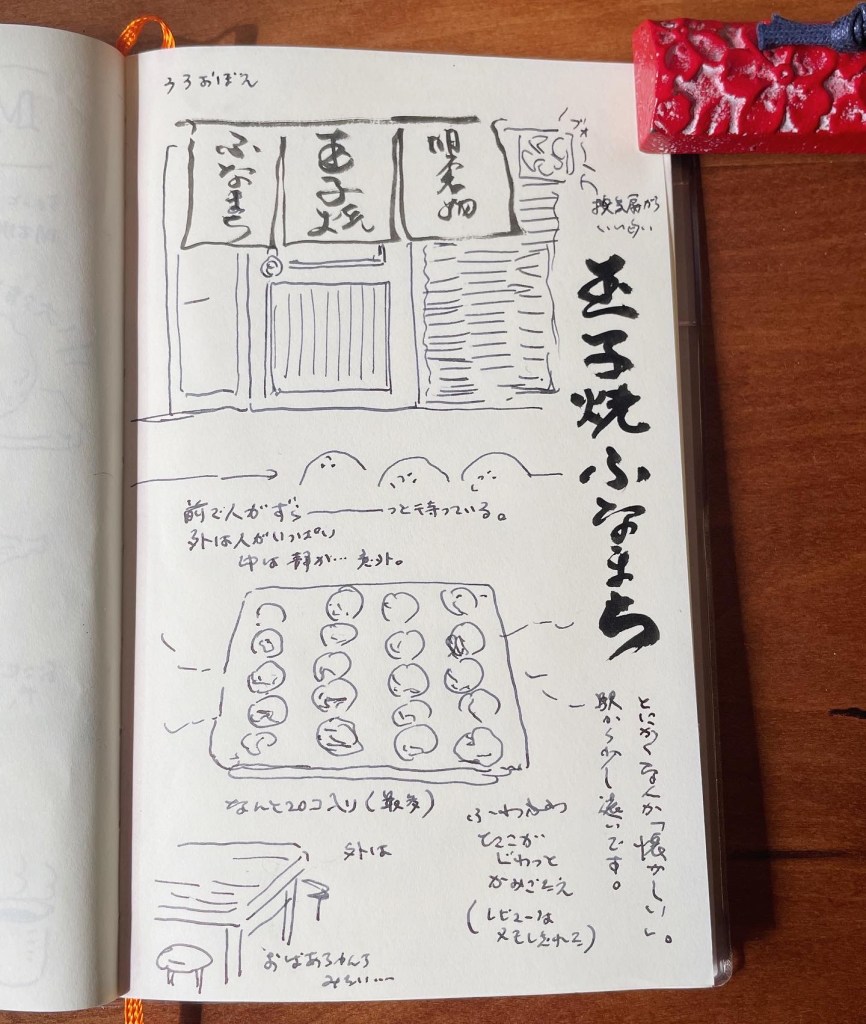 うろおぼえ
ふなまち
玉子焼
明石名物
ブォーン
換気扇から
いい匂い
玉子焼ふなまち
前で人がずら―――っと待っている。
外は人がいっぱい
中は静か…意外。
とにかくなんか「懐かしい」。
駅から少し遠いです。
なんと20コ入り(最多)
ふーわふわ
とこが
じわっと
かみごたえ
(レビューは
又もし忘れた)
外は
おばあちゃんち
みたい…